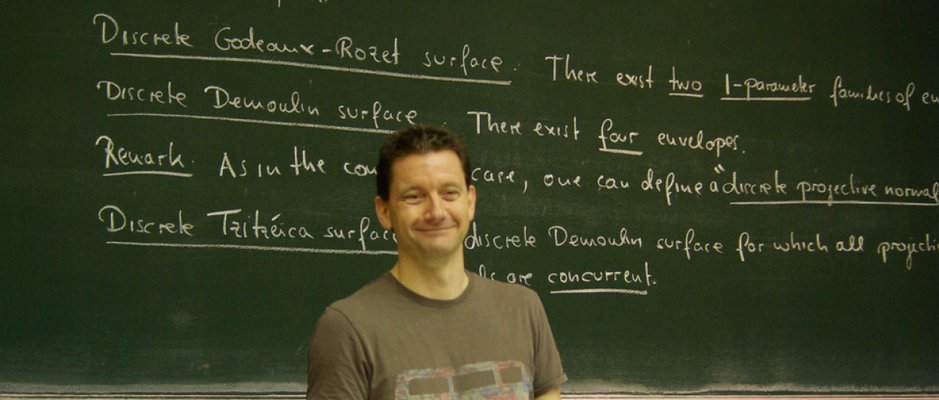 Discrete Godeaux-Rozet surface. There exist two 1-parameter families of en
Discrete Demoulin surface. There exist four envelopes.
Remark. As in the con case, one can define a "discrete projective normal
Discrete Tzitzéica surface discrete Demoulin surface for which all projecti
ls are concurrent.